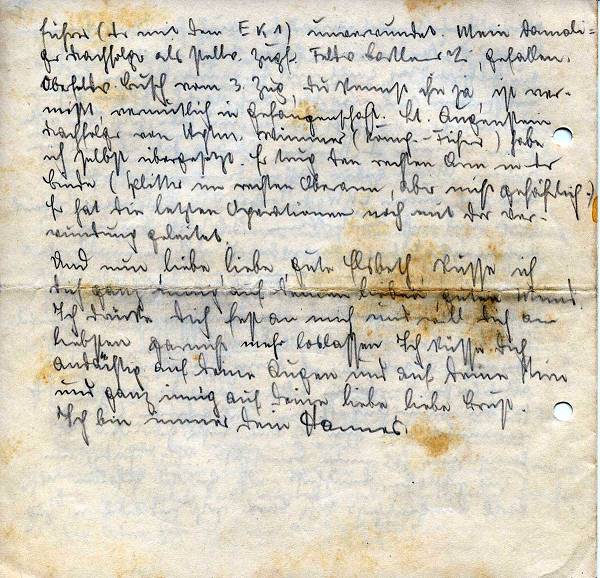 führer (der mit dem E K 1) unverwundet. Mein damali-
ger Nachfolger als stellv. Zugf. Feldw. gefallen.
Oberfeldw. Busch vom 3. Zug, Du kennst ihn ja, ist ver-
mißt, vermutlich in Gefangenschaft. Lt. Augenstein
Nachfolger von Hptm. Wimmer (Komp.-Führer) habe
ich selbst übergesetzt. Er trug den rechten Arm in der
Binde (Splitter im rechten Oberarm, aber nicht gefährlich.)
Er hat die letzten Operationen noch mit der Ver-
wundung geleitet.
Und nun, liebe, liebe, gute Elsbeth, küsse ich
Dich ganz innig auf Deinen lieben, guten Mund.
Ich drücke Dich fest an mich und will Dich am
liebsten garnicht mehr loslassen. Ich küsse Dich
andächtig auf Deine Augen und auf Deine Stirn
und ganz innig auf Deine liebe liebe Brust.
Ich bin immer Dein Hannes.